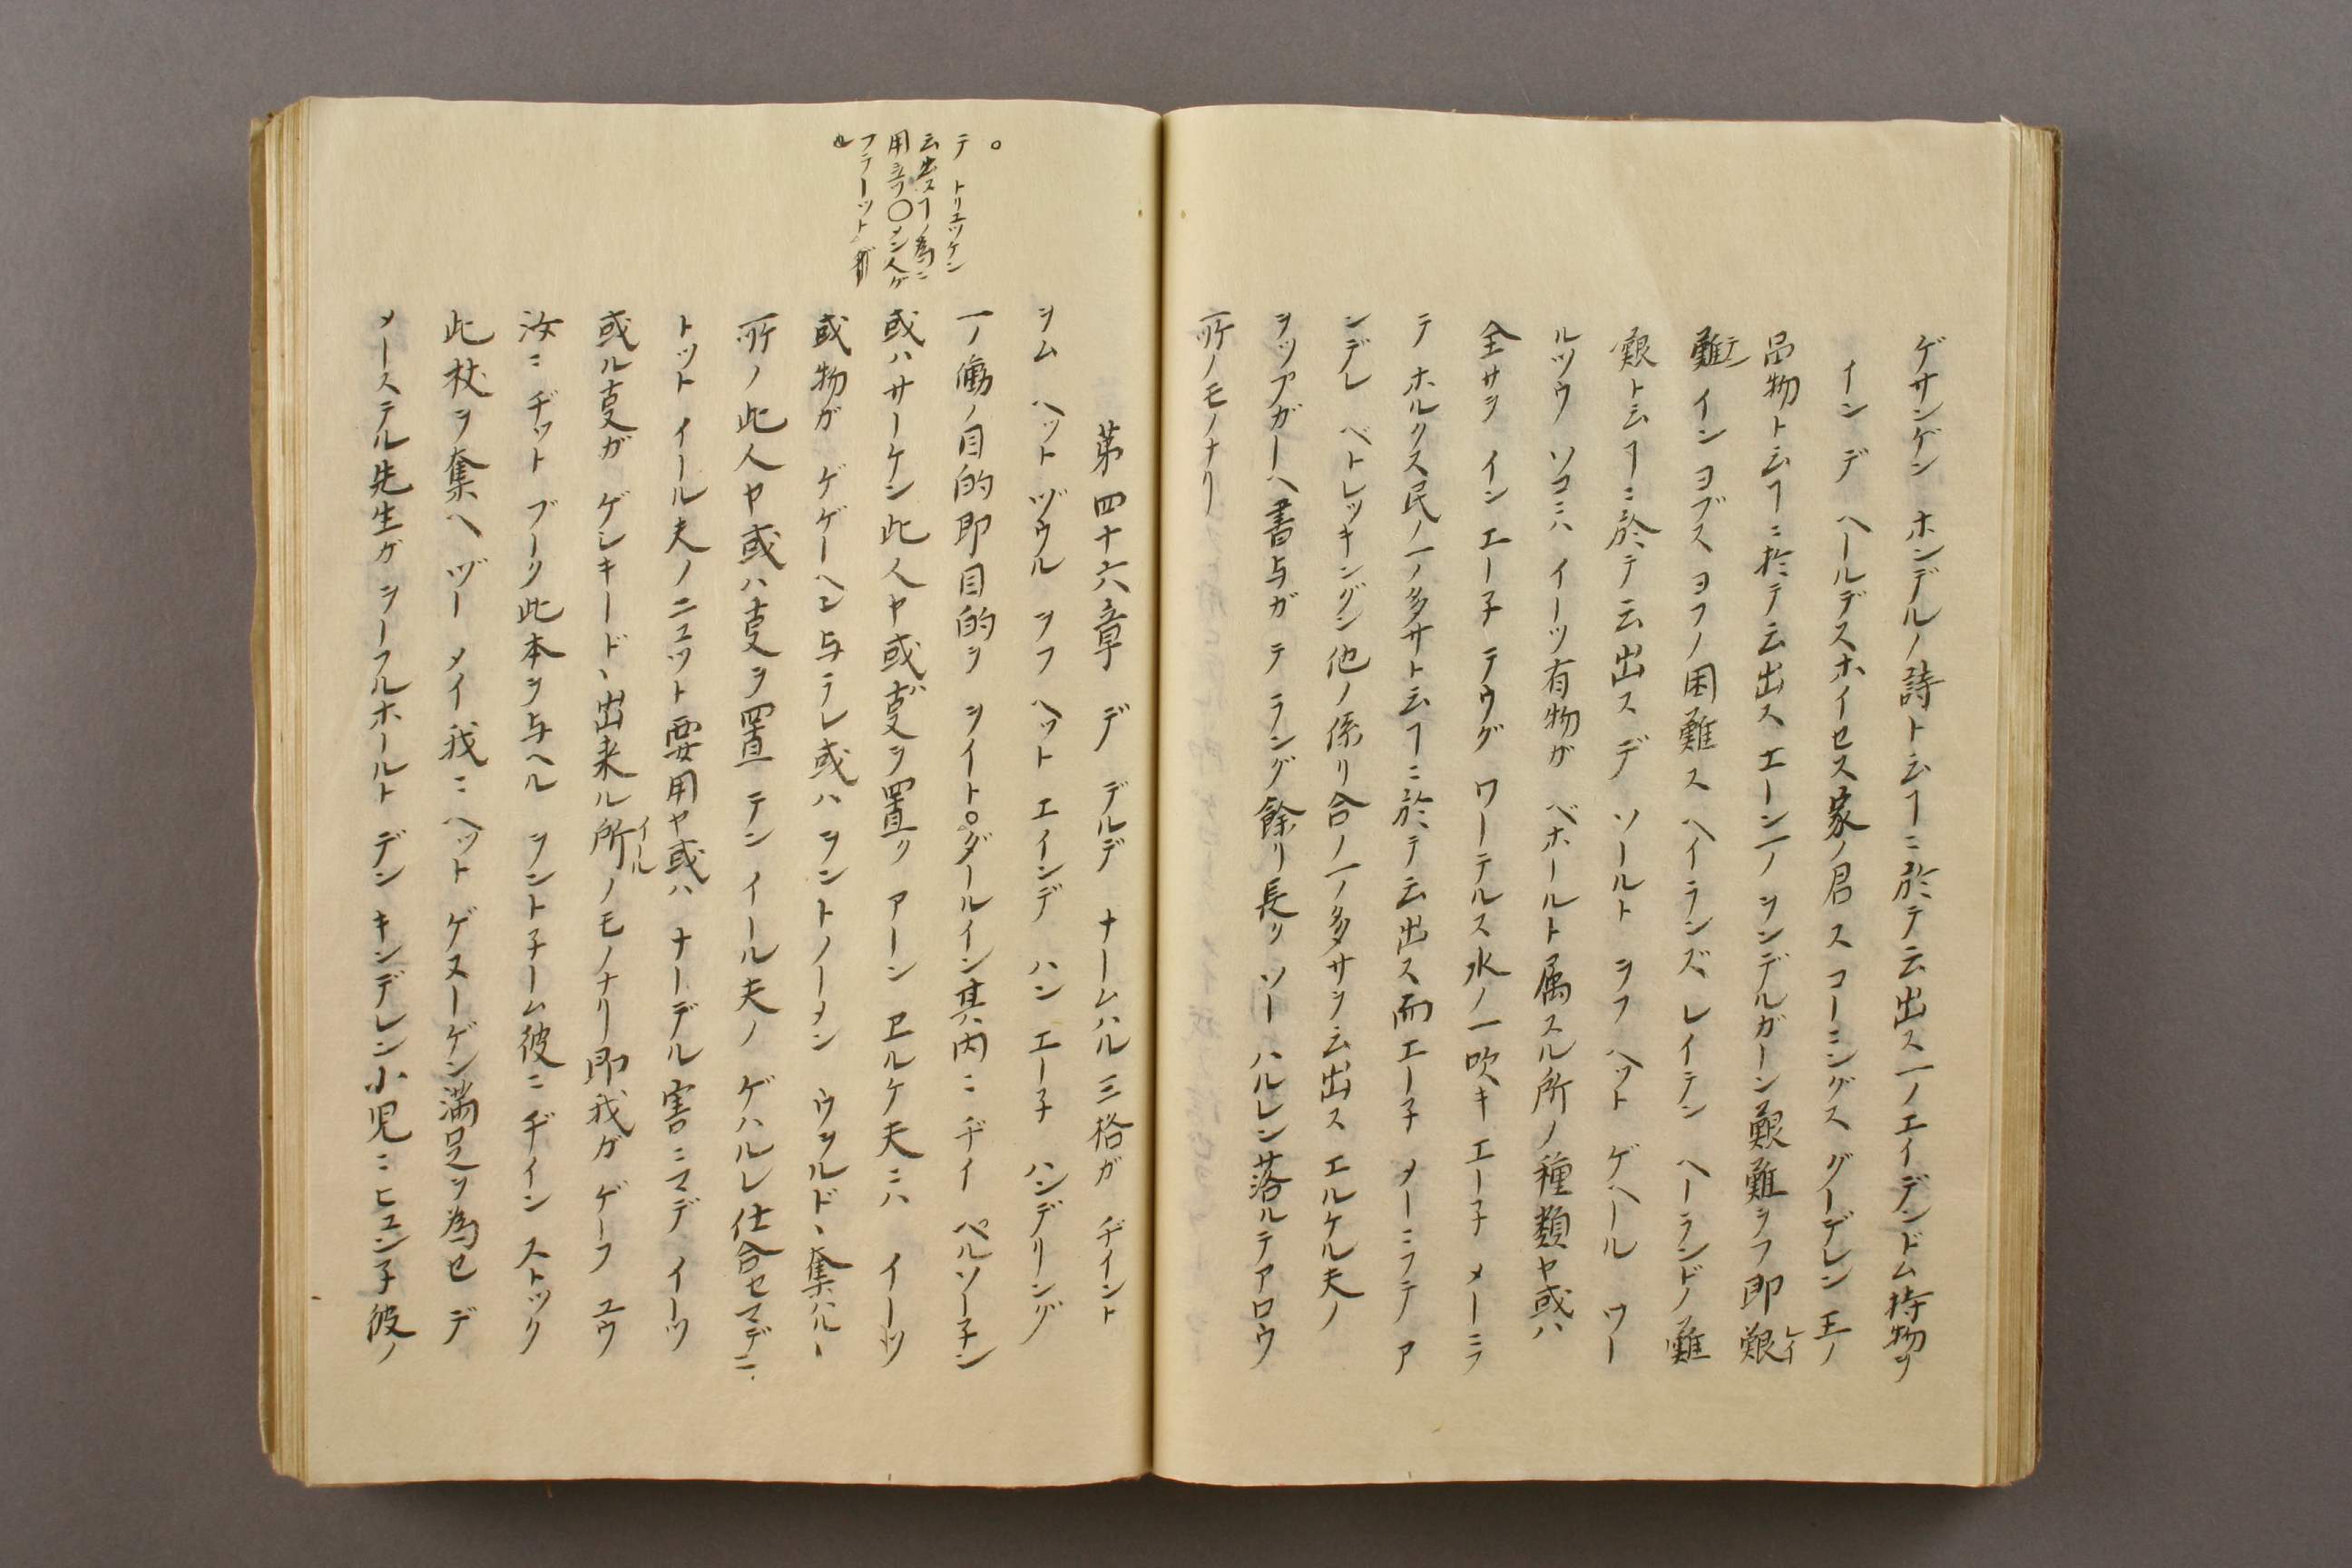 ゲサンゲン ホンデルノ詩ト云フニ於テ云出ス一ノエイデンドム持物ヲ
イン デ ヘールデスホイセス家ノ君 ス コーニングス グーデレン 王ノ
品物ト云フニ於テ云出ス エーン一ノ ヲンデルガーン艱難ヲフ即艱レイ
難テン イン ヨブス ヨフノ困難 ス ヘイランズ レイデン ヘーランドノ難
艱ト云フニ於テ云出ス デ ソールト ヲフ ヘット ゲヘール ワー
ルヅウ ソコニハ イーツ有物ガ ベホールト属スル所ノ種類ヤ或ハ
全サヲ イン エー子 テウグ ワーテルス水ノ一吹キ エー子 メーニフ
テ ホルクス民ノ一ノ多サト云フニ於テ云出ス而エー子 メーニフテ ア
ンデレ ベトレッキンゲン他ノ係リ合ノ一ノ多サヲ云出ス エルケル夫ノ
ヲップガーヘ書与ガ テ ラング餘リ長ク ソー ハルレン落ルテアロウ
所ノモノナリ
第四十六章 デ デルデ ナームハル三格ガ ヂイント
ヲム ヘット ヅウル ヲフ ヘット エインデ ハン エー子 ハンデリング
一ノ働ノ目的即目的ヲ ヲイト。ダールイン其内ニ ヂイ ペルソー子ン
或ハサーケン此人ヤ或ハ叓ヲ置ク アーン ヱルケ夫ニハ イーツ
或物ガ ゲゲーヘン与ラレ或ハ ヲントノーメン ウヲルド、奪ハル丨
所ノ此人ヤ或ハ叓ヲ置 テン イール夫ノ ゲハルレ仕合セマデニ
トット イール夫ノニュット要用ヤ或ハ ナーデル害ニマデ イーツ
或ル叓ガ ゲシキード、出来ル所イールノモノナリ即我ガ ゲーフ ユウ
汝ニ ヂット ブーク此本ヲ与ヘル ヲント子ーム彼ニ ヂイン ストック
此杖ヲ奪ヘ ヅー メイ我ニ ヘット ゲヌーゲン満足ヲ為セ デ
メーステル先生ガ ヲーフルホールト デン キンデレン小児ニヒュン子彼ノ
。
テ トリュッケン
云出スフノ為ニ
用立ツ〇メン人ゲ
フラーット 都
也